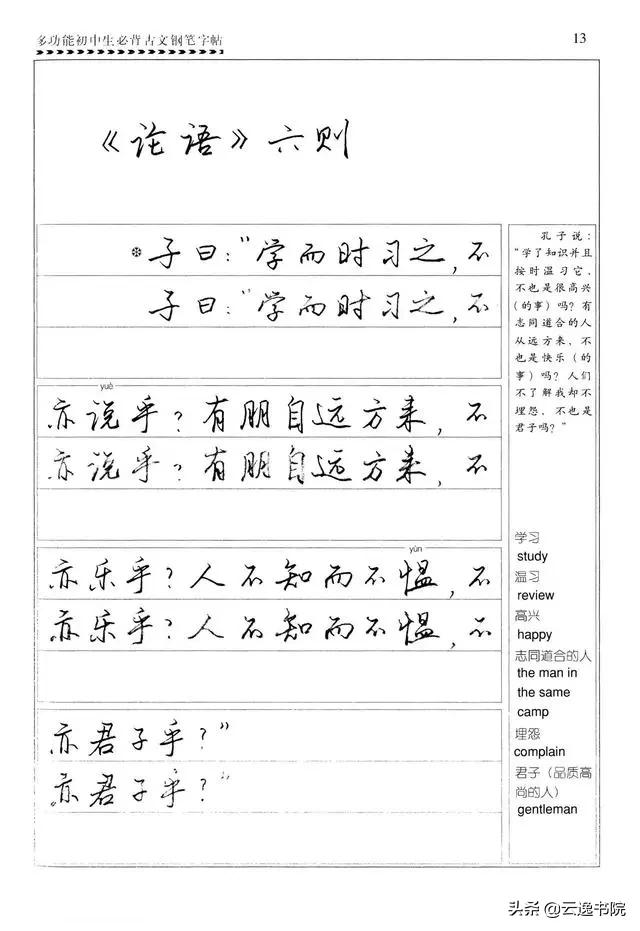 多功能初中生必背古文钢笔字帖
13
《论语》六则
子曰:“学而时习之,不
子曰:“学而时习之,不
yuè
亦说乎?有朋自远方来,不
亦说乎?有朋自远方来,不
yùn
亦乐乎?人不知而不愠,不
亦乐乎?人不知而不愠,不
亦君子乎?”
亦君子乎?”
孔子说:
“学了知识并且
按时温习它,
不也是很高兴
(的事)吗?有
志同道合的人
从远方来,不
也是快乐(的
事)吗?人们
不了解我却不
埋怨,不也是
君子吗?”
学习
study
温习
review
高兴
happy
志同道合的人
the man in
the same
camp
埋怨
complain
君子(品质高
尚的人)
gentleman
头条 @云逸书院